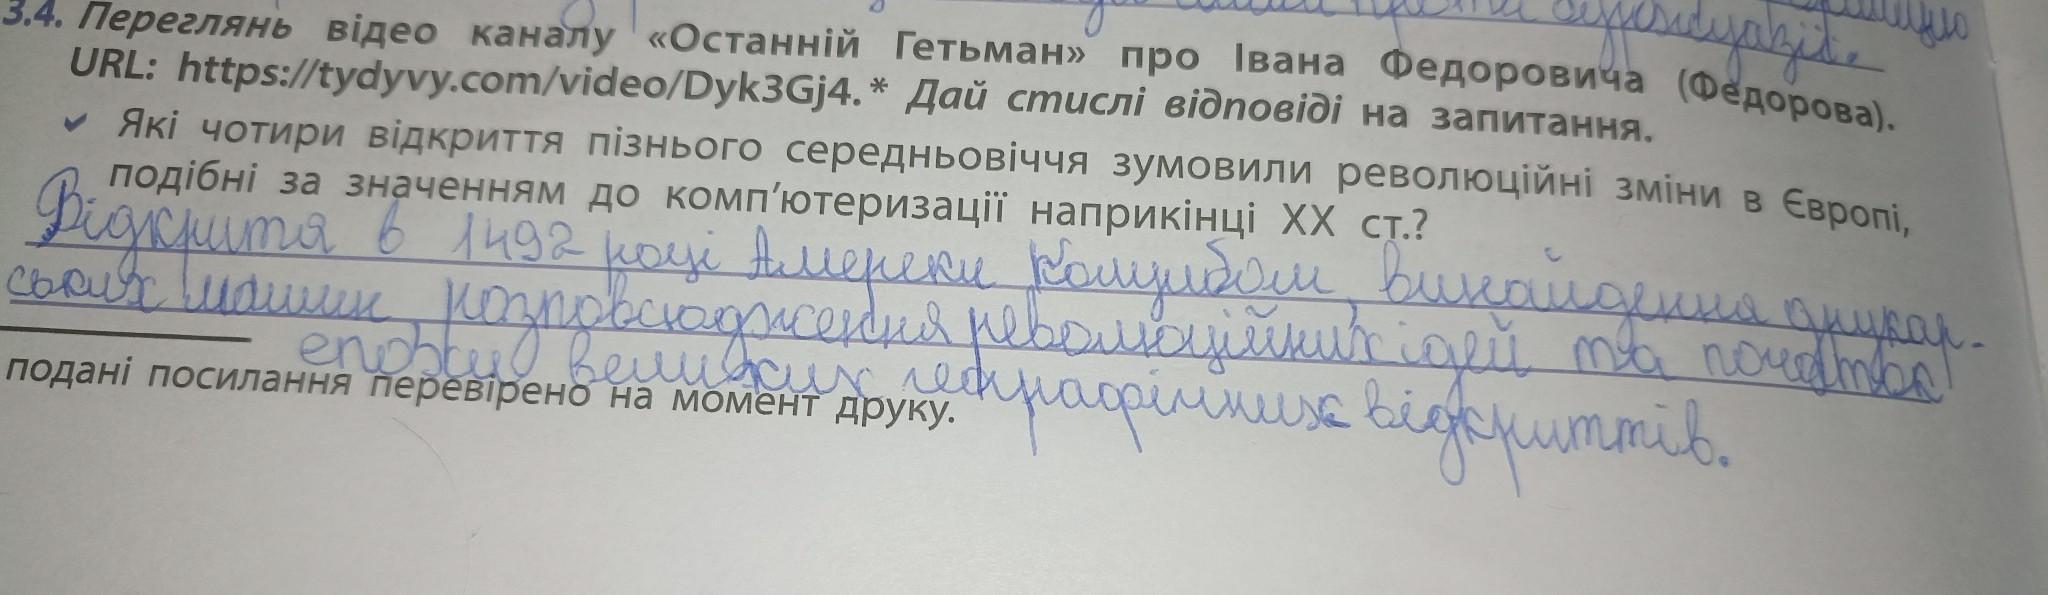 3.4. Переглянь відео каналу «Останній Гетьман» про Івана Федоровича (Федорова).
URL: https://tydyvy.com/video/Dyk3Gj4.* Дай стислі відповіді на запитання.
✓ Які чотири відкриття пізнього середньовіччя зумовили революційні зміни в Європі,
подібні за значенням до комп’ютеризації наприкінці XX ст.?
Відкриття в 1492 році Америки Колумбом, винайдення друкар-
ських машин розповсюдження революційних ідей та початок
епохи великих географічних відкриттів.
подані посилання перевірено на момент друку.